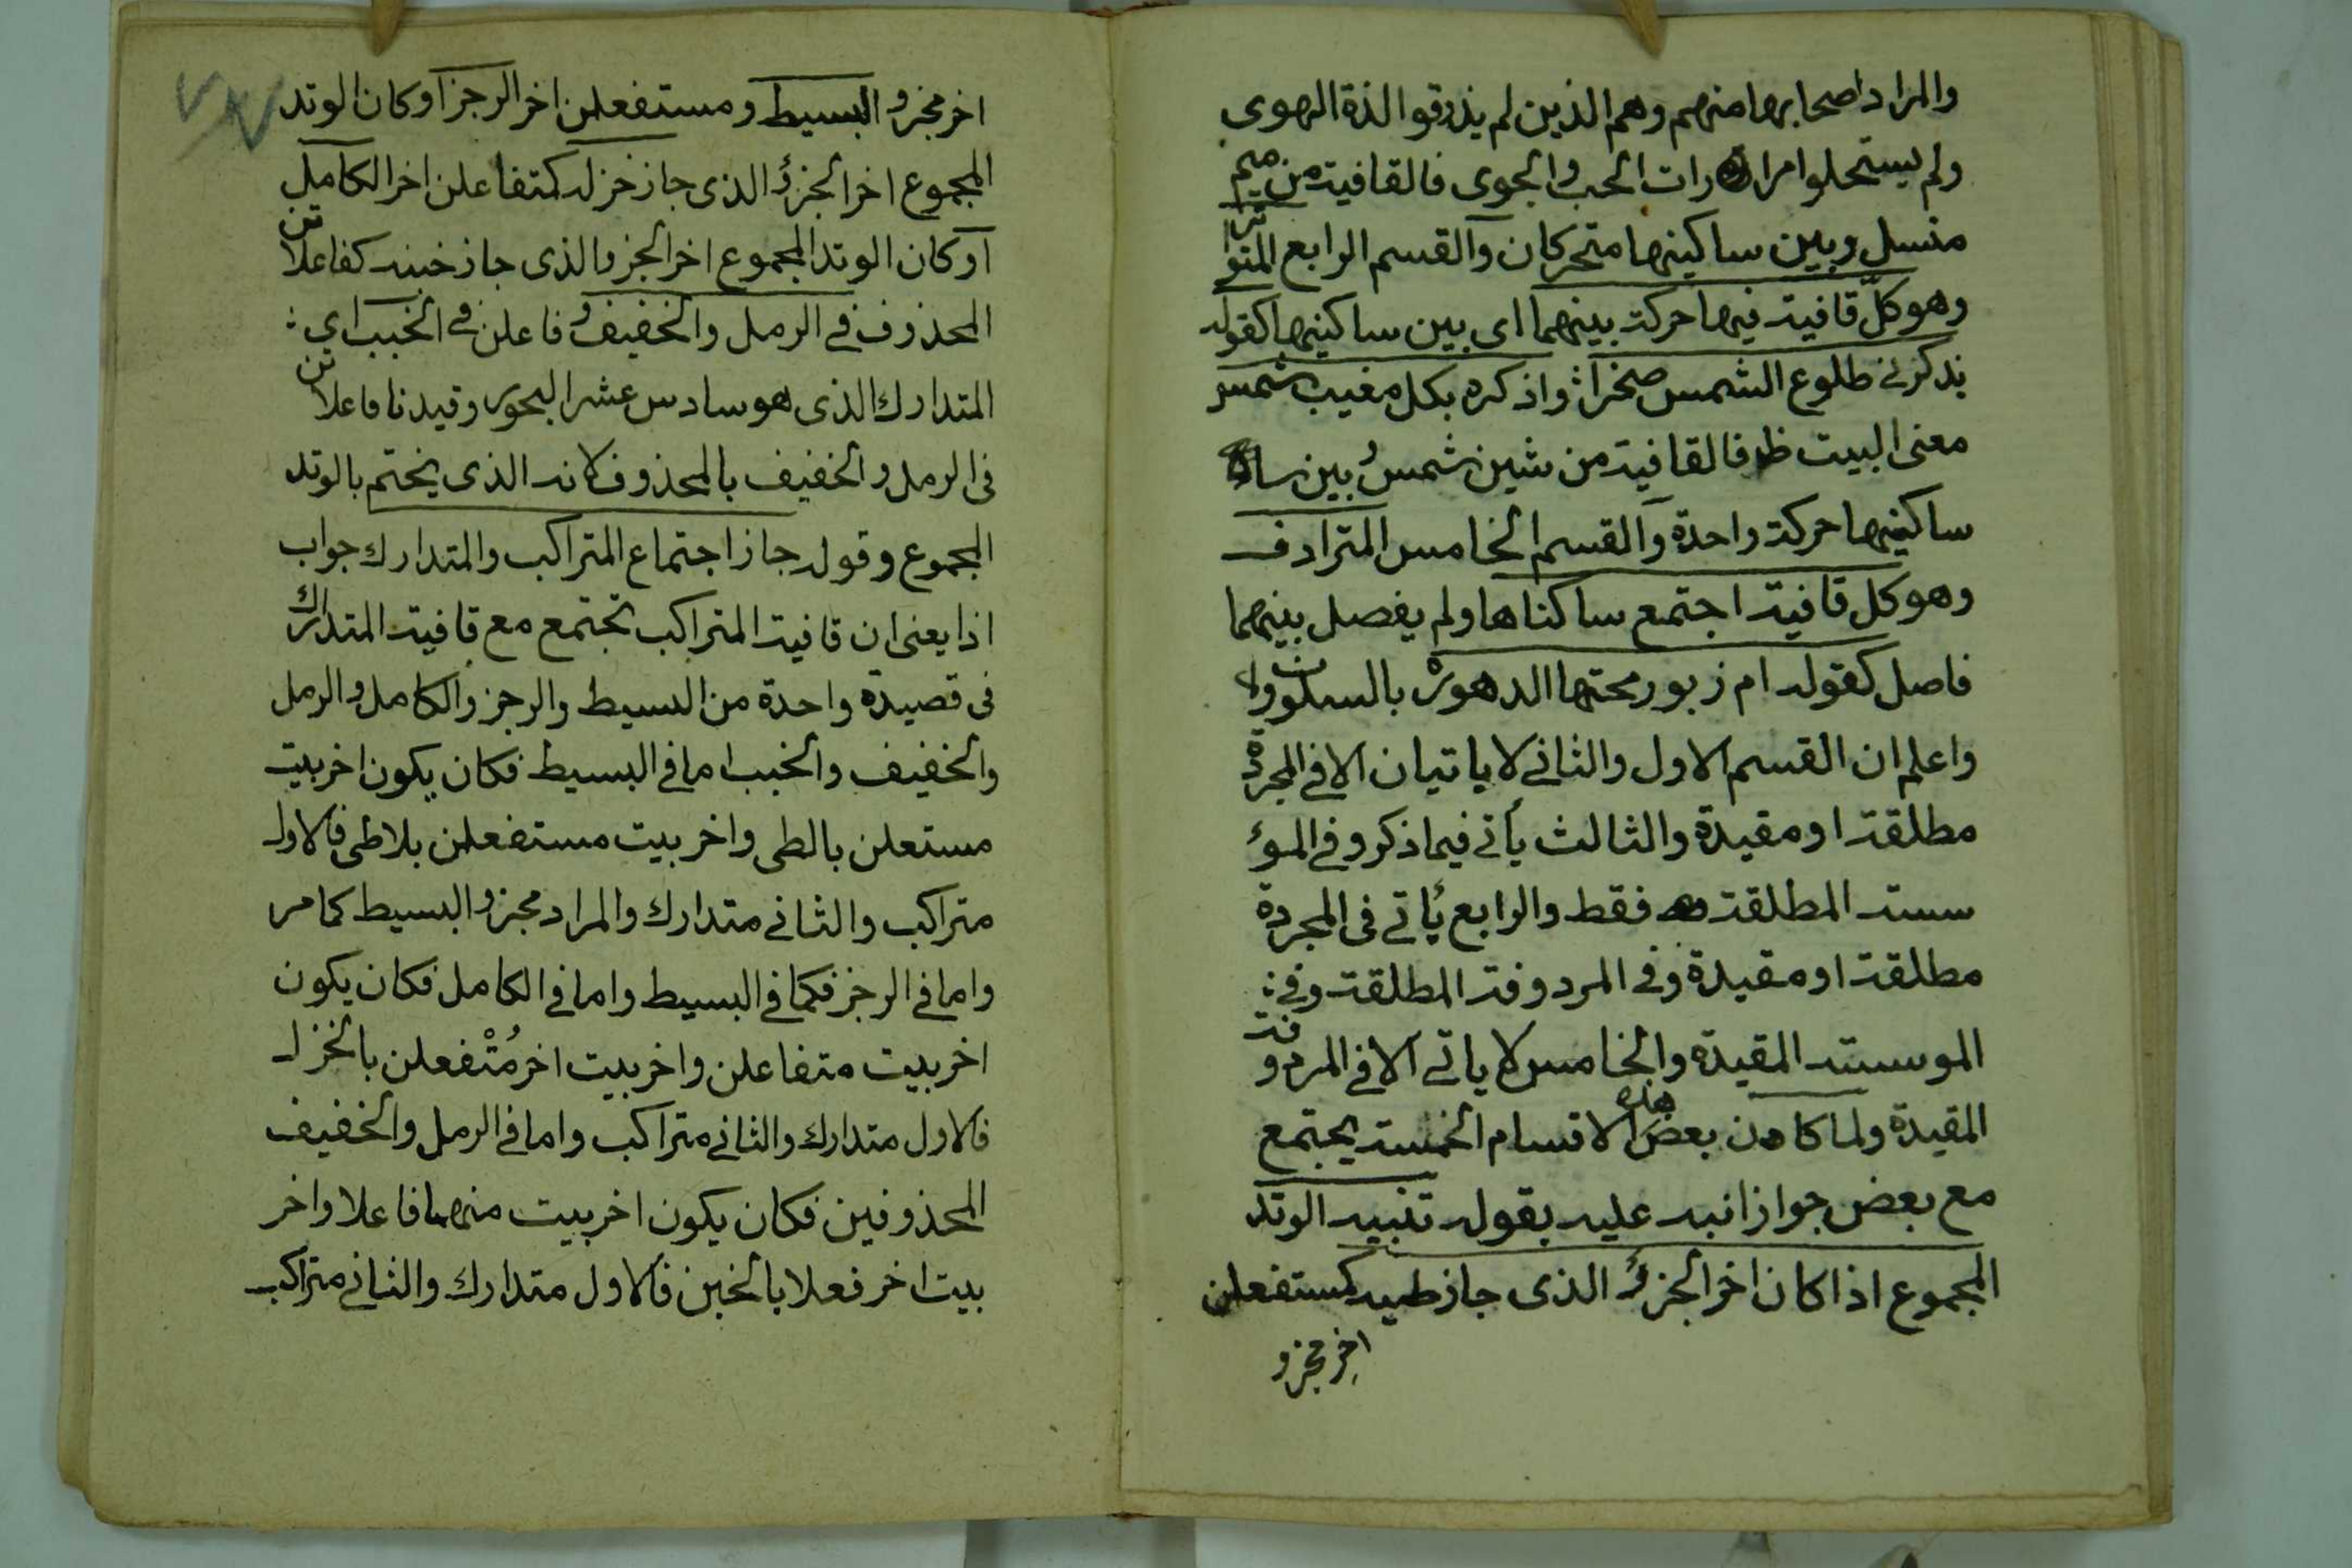 والمراد اصحابها منهم وهم الذين لم يذوقوا لذة الهوى
ولم يستحلوا مرارات الحب والجوى فالقافية من ميم
منسل وبين ساكنيها متحركان والقسم الرابع المتواتر
وهو كلّ قافية فيها حركة بينهما اى بين ساكنيها كقوله
يذكرنى طلوع الشمس صخرا واذكره بكل مغيب شمس
معنى البيت ظ فالقافية من شين شمس بين
ساكنيها حركة واحدة والقسم الخامس المترادف
وهو كل قافية اجتمع ساكناها ولم يفصل بينهما
فاصل كقوله ام زبور محتها الدهورْ بالسكون
واعلم ان القسم الاول والثانى لا ياتيان الا فى المجردة
مطلقة او مقيدة والثالث يأتى فيما ذكر وفى المؤ
سسة المطلقة فقط والرابع يأتى فى المجردة
مطلقة او مقيدة وفى المردوفة المطلقة وفى :
الموسسة المقيدة والخامس لا ياتى الا فى المردوفة
المقيدة ولما كان بعض هذه الاقسام الخمسة يجتمع
مع بعض جوازا نبه عليه بقوله تنبيه الوتد
المجموع اذا كان اخر الجزؤ الذى جاز طيه كمستفعلن
اخر مجزو
اخر مجزو البسيط ومستفعلن اخر الرجز او كان الوتد
المجموع اخر الجزؤ الذى جاز خزله كمتفاعلن اخر الكامل
او كان الوتد المجموع اخر الجزو الذى جاز خبنه كفاعلاتن
المحذوف فى الرمل والخفيف و فاعلن فى الخبب اي :
المتدارك الذى هو سادس عشر البحور وقيدنا فاعلاتن
فى الرمل والخفيف بالمحذوف لانه الذى يختم بالوتد
المجموع وقوله جاز اجتماع المتراكب والمتدارك جواب
اذا يعنى ان قافية المتراكب تجتمع مع قافية المتدارك
فى قصيدة واحدة من البسيط والرجز والكامل والرمل
والخفيف والخبب اما فى البسيط فكان يكون اخر بيت
مستعلن بالطى واخر بيت مستفعلن بلا طى فالاول
متراكب والثانى متدارك والمراد مجزو البسيط كما مر
واما فى الرجز فكما فى البسيط واما فى الكامل فكان يكون
اخر بيت متفاعلن واخر بيت اخر مُتْفعلن بالخزل
فالاول متدارك والثانى متراكب واما فى الرمل والخفيف
المحذوفين فكان يكون اخر بيت منهما فاعلا واخر
بيت اخر فعلا بالخبن فالاول متدارك والثانى متراكب